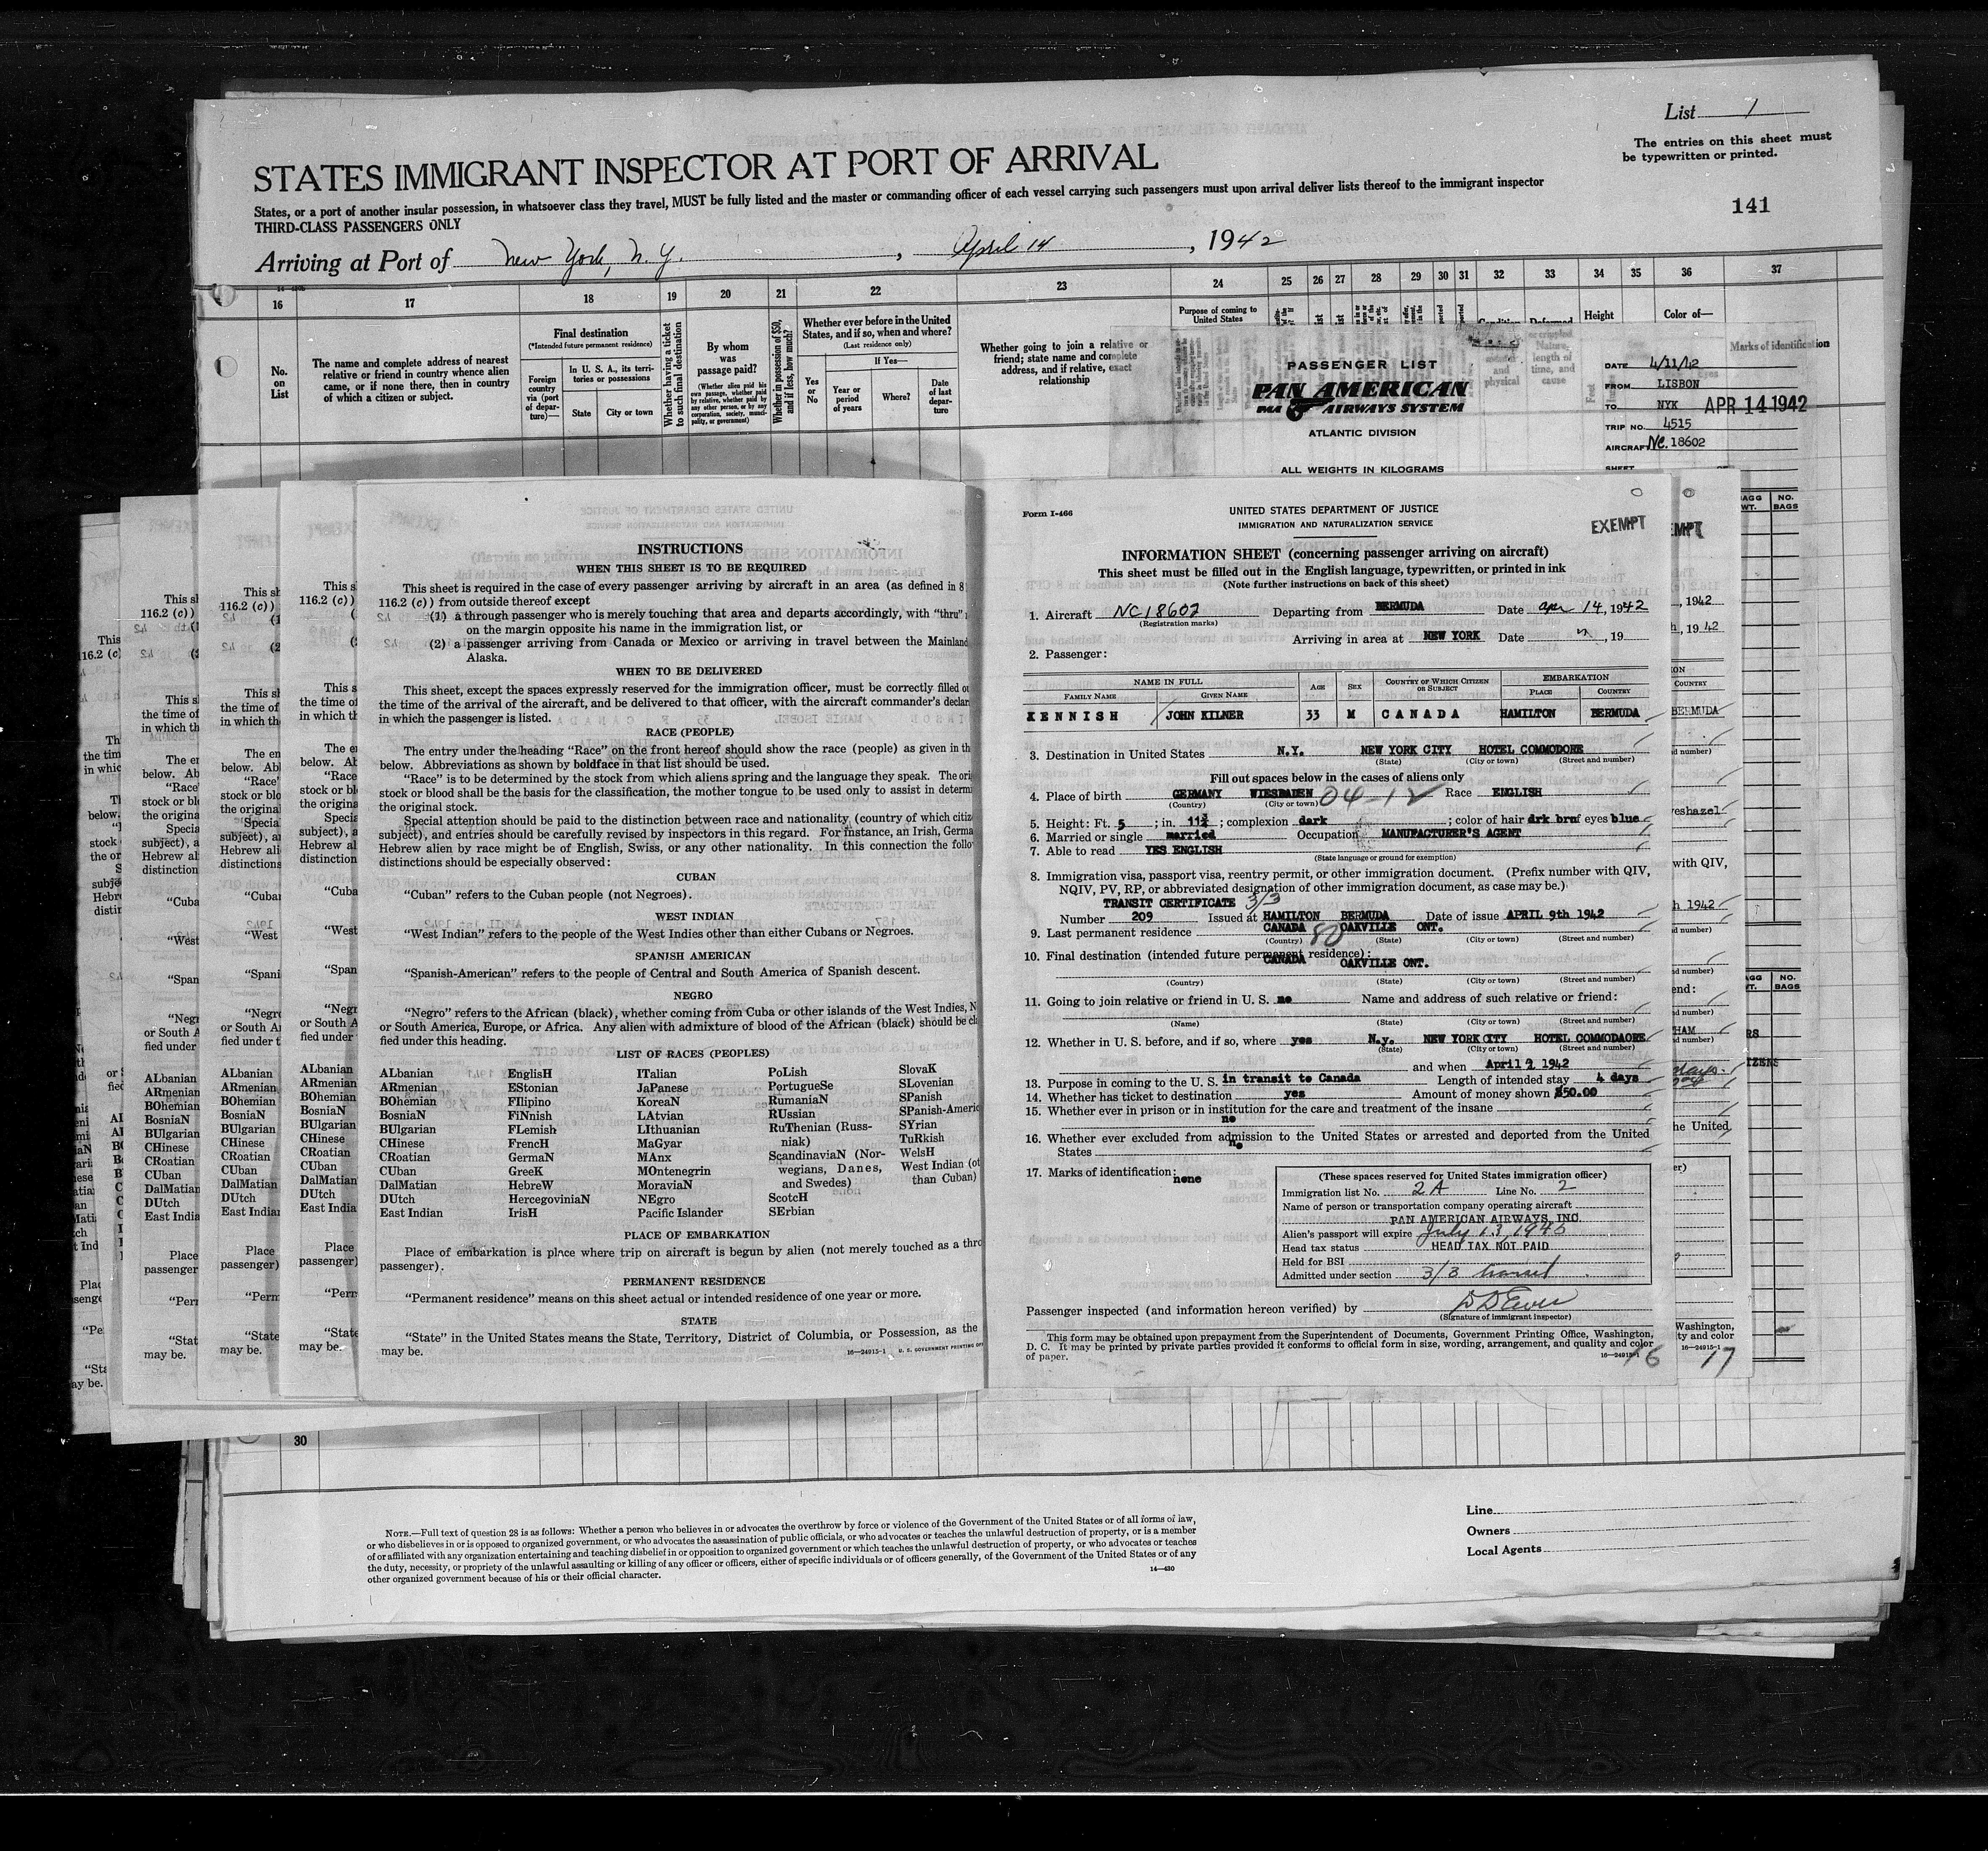 List 1
The entries on this sheet must
be typewritten or printed.
STATES IMMIGRANT INSPECTOR AT PORT OF ARRIVAL
States, or a port of another insular possession, in whatsoever class they travel, MUST be fully listed and the master or commanding officer of each vessel carrying such passengers must upon arrival deliver lists thereof to the immigrant inspector
THIRD-CLASS PASSENGERS ONLY
141
Arriving at Port of New York, N. Y. , April 14 , 1942
16 17 18 19 20 21 22 23 24 25 26 27 28 29 30 31 32 33 34 35 36 37
No.
on
List
The name and complete address of nearest
relative or friend in country whence alien
came, or if none there, then in country
of which a citizen or subject.
Final destination
(*Intended future permanent residence)
Foreign
country
via (port
of depar-
ture)—
In U. S. A., its terri-
tories or possessions
State
City or town
Whether having a ticket
to such final destination
By whom
was
passage paid?
(Whether alien paid his
own passage, whether paid
by relative, whether paid by
any other person, or by any
corporation, society, munici-
pality, or government)
Whether in possession of $50,
and if less, how much?
Whether ever before in the United
States, and if so, when and where?
(Last residence only)
Yes
or
No
If Yes—
Year or
period
of years
Where?
Date
of last
depar-
ture
Whether going to join a relative or
friend; state name and complete
address, and if relative, exact
relationship
Purpose of coming to
United States
Height
Color of—
Marks of identification
PASSENGER LIST
PAN AMERICAN
PAA AIRWAYS SYSTEM
ATLANTIC DIVISION
ALL WEIGHTS IN KILOGRAMS
DATE 4/11/42
FROM LISBON
TO NYK APR 14 1942
TRIP NO. 4515
AIRCRAFT NC. 18602
INSTRUCTIONS
WHEN THIS SHEET IS TO BE REQUIRED
This sheet is required in the case of every passenger arriving by aircraft in an area (as defined in 8
116.2 (c)) from outside thereof except
(1) a through passenger who is merely touching that area and departs accordingly, with "thru"
on the margin opposite his name in the immigration list, or
(2) a passenger arriving from Canada or Mexico or arriving in travel between the Mainland
Alaska.
WHEN TO BE DELIVERED
This sheet, except the spaces expressly reserved for the immigration officer, must be correctly filled
the time of the arrival of the aircraft, and be delivered to that officer, with the aircraft commander's
in which the passenger is listed.
RACE (PEOPLE)
The entry under the heading "Race" on the front hereof should show the race (people) as given in th
below. Abbreviations as shown by boldface in that list should be used.
"Race" is to be determined by the stock from which aliens spring and the language they speak. The
stock or blood shall be the basis for the classification, the mother tongue to be used only to assist in
the original stock.
Special attention should be paid to the distinction between race and nationality (country of which
subject), and entries should be carefully revised by inspectors in this regard. For instance, an Irish,
Hebrew alien by race might be of English, Swiss, or any other nationality. In this connection the
distinctions should be especially observed:
CUBAN
"Cuban" refers to the Cuban people (not Negroes).
WEST INDIAN
"West Indian" refers to the people of the West Indies other than either Cubans or Negroes.
SPANISH AMERICAN
"Spanish-American" refers to the people of Central and South America of Spanish descent.
NEGRO
"Negro" refers to the African (black), whether coming from Cuba or other islands of the West Indies, N
or South America, Europe, or Africa. Any alien with admixture of blood of the African (black) should be
fied under this heading.
LIST OF RACES (PEOPLES)
ALbanian
ARmenian
BOhemian
BosniaN
BUlgarian
CHinese
CRoatian
CUban
DalMatian
DUtch
East Indian
EnglisH
EStonian
FIlipino
FiNnish
FLemish
FrencH
GermaN
GreeK
HebreW
HercegoviniaN
IrisH
ITalian
JaPanese
KoreaN
LAtvian
LIthuanian
MaGyar
MAnx
MOntenegrin
MoraviaN
NEgro
Pacific Islander
PoLish
PortugueSe
RumaniaN
RUssian
RuThenian (Russ-
niak)
ScandinaviaN (Nor-
wegians, Danes,
and Swedes)
ScotcH
SErbian
SlovaK
SLovenian
SPanish
SPanish-Americ
SYrian
TuRkish
WelsH
West Indian (ot
than Cuban)
PLACE OF EMBARKATION
Place of embarkation is place where trip on aircraft is begun by alien (not merely touched as a thro
passenger).
PERMANENT RESIDENCE
"Permanent residence" means on this sheet actual or intended residence of one year or more.
STATE
"State" in the United States means the State, Territory, District of Columbia, or Possession, as the
may be.
16—24915-1 U. S. GOVERNMENT PRINTING
Form I-466
UNITED STATES DEPARTMENT OF JUSTICE
IMMIGRATION AND NATURALIZATION SERVICE
EXEMPT
INFORMATION SHEET (concerning passenger arriving on aircraft)
This sheet must be filled out in the English language, typewritten, or printed in ink
(Note further instructions on back of this sheet)
1. Aircraft NC18602 Departing from BERMUDA Date Apr 14, 1942
(Registration marks)
Arriving in area at NEW YORK Date " , 19
2. Passenger:
NAME IN FULL
FAMILY NAME GIVEN NAME AGE SEX COUNTRY OF WHICH CITIZEN OR SUBJECT EMBARKATION PLACE COUNTRY
KENNISH JOHN KILNER 33 M CANADA HAMILTON BERMUDA
3. Destination in United States N.Y. NEW YORK CITY HOTEL COMMODORE
(State) (City or town) (Street and number)
Fill out spaces below in the cases of aliens only
4. Place of birth GERMANY WIESBADEN 04-12 Race ENGLISH
(Country) (City or town)
5. Height: Ft. 5 ; in. 11¾ ; complexion dark ; color of hair drk brn eyes blue
6. Married or single married Occupation MANUFACTURER'S AGENT
7. Able to read YES ENGLISH
(State language or ground for exemption)
8. Immigration visa, passport visa, reentry permit, or other immigration document. (Prefix number with QIV,
NQIV, PV, RP, or abbreviated designation of other immigration document, as case may be.)
TRANSIT CERTIFICATE 3/3
Number 209 Issued at HAMILTON BERMUDA Date of issue APRIL 9th 1942
9. Last permanent residence CANADA OAKVILLE ONT.
(Country) 80 (State) (City or town) (Street and number)
10. Final destination (intended future permanent residence):
CANADA OAKVILLE ONT.
(Country) (State) (City or town) (Street and number)
11. Going to join relative or friend in U. S. no Name and address of such relative or friend:
(Name) (State) (City or town) (Street and number)
12. Whether in U. S. before, and if so, where yes N.y. NEW YORK CITY HOTEL COMMODAORE
(State) (City or town) (Street and number)
and when April 9 1942
13. Purpose in coming to the U. S. in transit to Canada Length of intended stay 4 days
14. Whether has ticket to destination yes Amount of money shown $50.00
15. Whether ever in prison or in institution for the care and treatment of the insane
no
16. Whether ever excluded from admission to the United States or arrested and deported from the United
States no
17. Marks of identification:
none
(These spaces reserved for United States immigration officer)
Immigration list No. 2A Line No. 2
Name of person or transportation company operating aircraft
PAN AMERICAN AIRWAYS, INC.
Alien's passport will expire July 13, 1945
Head tax status HEAD TAX NOT PAID
Held for BSI
Admitted under section 3/3 transit
Passenger inspected (and information hereon verified) by
(Signature of immigrant inspector)
This form may be obtained upon prepayment from the Superintendent of Documents, Government Printing Office, Washington,
D. C. It may be printed by private parties provided it conforms to official form in size, wording, arrangement, and quality and color
of paper.
16—24915-1
16
17
30
NOTE.—Full text of question 28 is as follows: Whether a person who believes in or advocates the overthrow by force or violence of the Government of the United States or of all forms of law,
or who disbelieves in or is opposed to organized government, or who advocates the assassination of public officials, or who advocates or teaches the unlawful destruction of property, or is a member
of or affiliated with any organization entertaining and teaching disbelief in or opposition to organized government or which teaches the unlawful destruction of property, or who advocates or teaches
the duty, necessity, or propriety of the unlawful assaulting or killing of any officer or officers, either of specific individuals or of officers generally, of the Government of the United States or of any
other organized government because of his or their official character.
14—430
Line
Owners
Local Agents